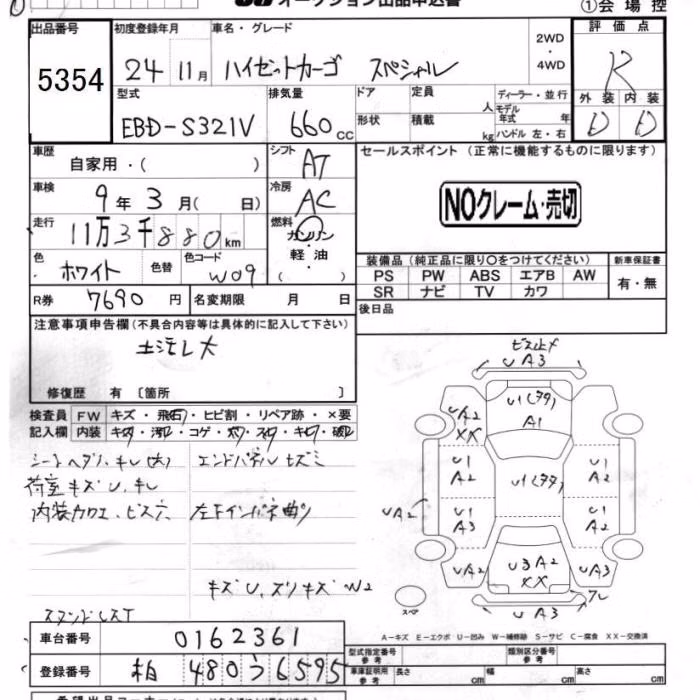 オークション出品申込書
①会場控
出品番号
5354
初度登録年月
24年 11月
車名・グレード
ハイゼットカーゴ スペシャル
2WD
・
4WD
評価点
R
外装 内装
D D
型式
EBD-S321V
排気量
660 CC
ドア
形状
定員 人
積載 kg
ディーラー・並行
モデル年式 年
ハンドル 左・右
車歴
自家用・( )
シフト
AT
セールスポイント (正常に機能するものに限ります)
NOクレーム・売切
車検
9年 3月( 日)
冷房
AC
走行
11万3千880km
燃料
ガソリン
・
軽油
( )
色
ホワイト
色替
色コード
W09
装備品 (純正品に限り○をつけてください)
新車保証書
有・無
PS PW ABS エアB AW
SR ナビ TV カワ
R券 7690円
名変期限 月 日
後日品
注意事項申告欄 (不具合内容等は具体的に記入して下さい)
修復歴 有 〔箇所 〕
検査員記入欄
FW キズ・飛石・ヒビ割・リペア跡・×要
内装 キズ・汚れ・コゲ・穴・スレ・キレ・破れ
シートヘタリ、キレ(大)
エンドパネルヒズミ
荷室キズU、キレ
内装カケ、ビス穴
左下インパネ曲り
キズU、スリキズW2
ビス止メ
UA3
U1(多タ)
A1
UA2
XX
U1
A2
U1
A2
U1(多タ)
UA2
U1
A3
A2
UA2
U3 A2
XX
UA3
UA3
スペア
A-キズ E-エクボ U-凹み W-補修跡 S-サビ C-腐食 XX-交換済
車台番号
0162361
登録番号
柏 480う6595
型式指定番号
参考
類別区分番号
参考
車庫証明用
参考
長さ cm
幅 cm
高さ cm